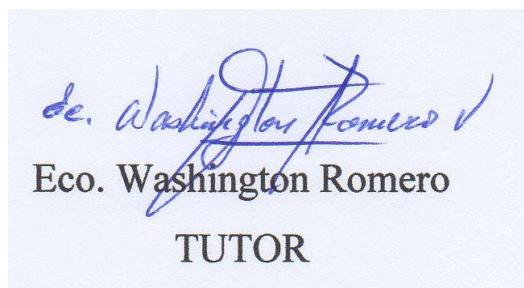 Ec. Washington Romero V
Eco. Washington Romero
TUTOR